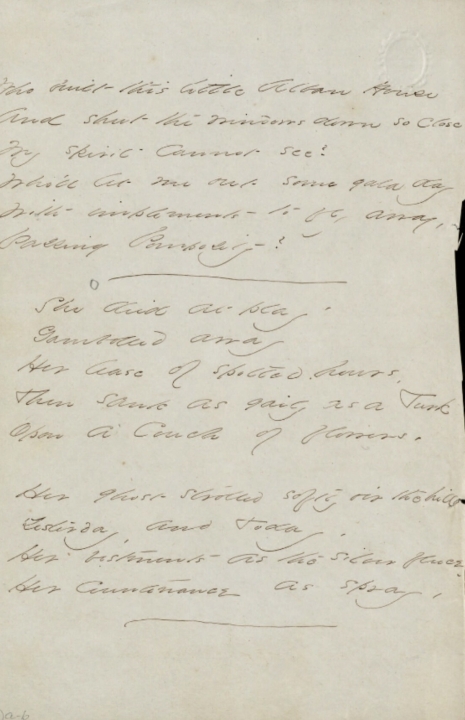 Who built this little Alban House
And shut the windows down so close
My spirit cannot see?
Who'll let me out some gala day
With implements to fly away,
Passing Pomposity?
She died at play.
Gambolled away
Her lease of spotted hours,
Then sank as gaily as a Turk
Upon a Couch of flowers.
Her ghost strolled softly o'er the hill
Yesterday, and Today,
Her vestments as the silver fleece
Her countenance as spray,